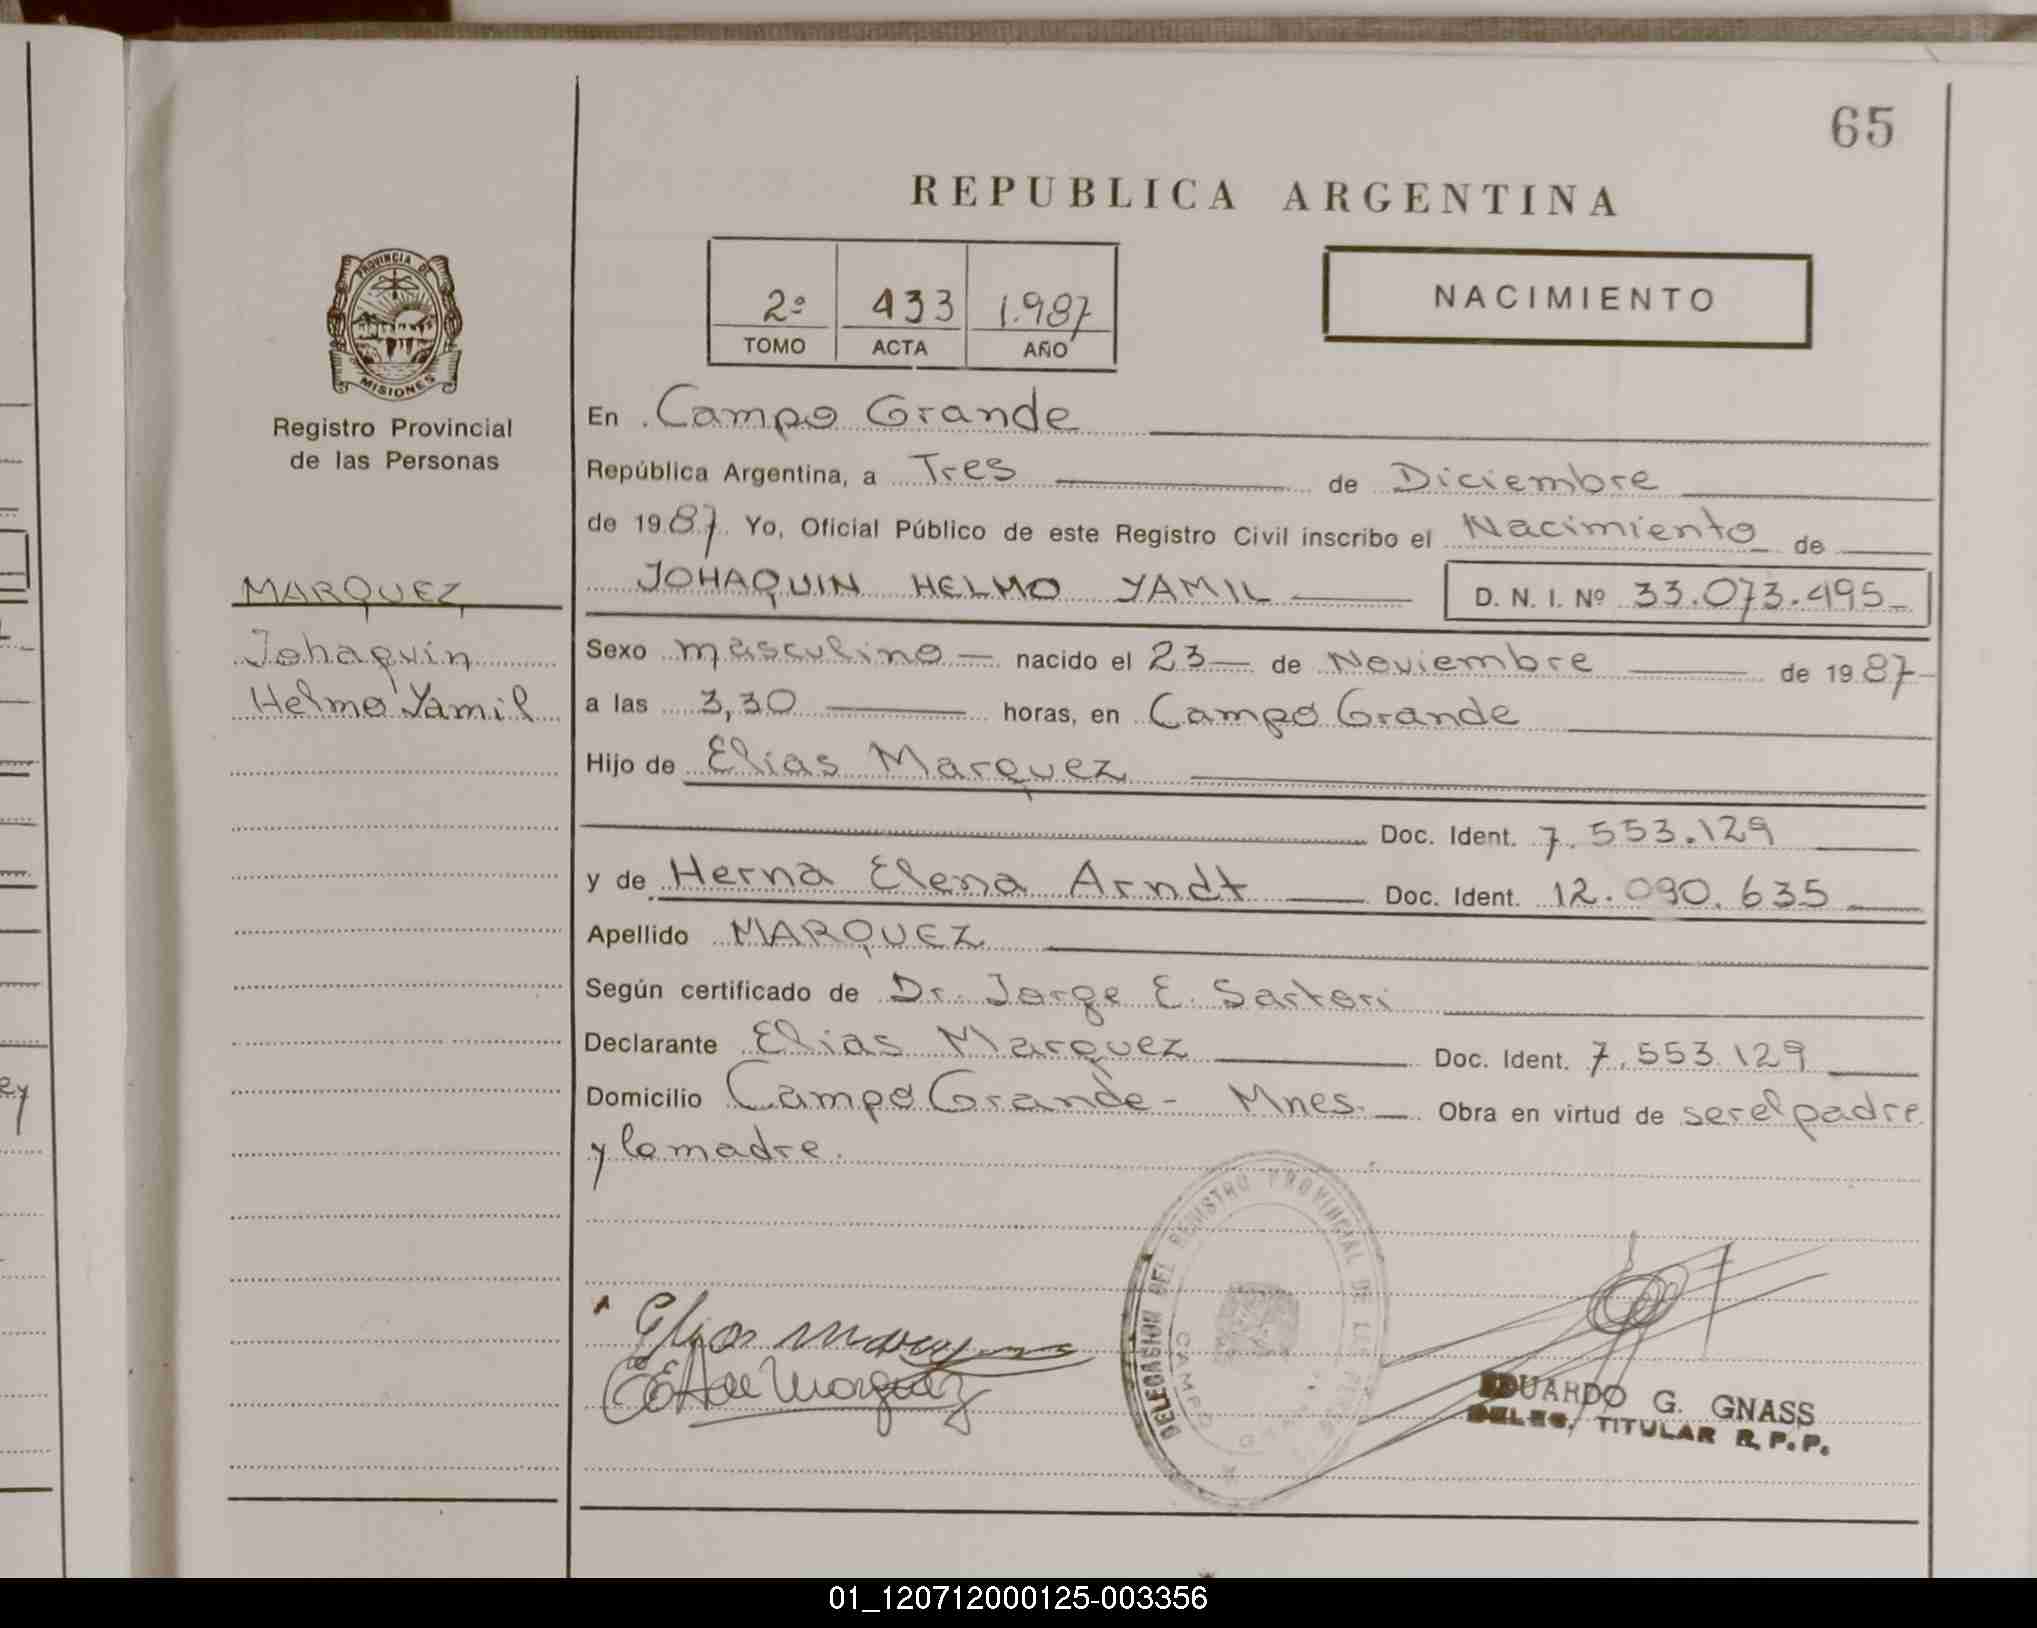 65
REPUBLICA ARGENTINA
PROVINCIA DE
MISIONES
Registro Provincial
de las Personas
2º 433 1.987
TOMO ACTA AÑO
NACIMIENTO
En Campo Grande
República Argentina, a Tres de Diciembre
de 1987 Yo, Oficial Público de este Registro Civil inscribo el Nacimiento de
JOHAQUIN HELMO YAMIL D. N. I. Nº 33.073.495
MARQUEZ
Johaquin
Helmo Yamil
Sexo masculino nacido el 23 de Noviembre de 1987
a las 3,30 horas, en Campo Grande
Hijo de Elias Marquez
Doc. Ident. 7.553.129
y de Herna Elena Arndt Doc. Ident. 12.090.635
Apellido MARQUEZ
Según certificado de Dr. Jorge E. Sartori
Declarante Elias Marquez Doc. Ident. 7.553.129
Domicilio Campo Grande - Mnes. Obra en virtud de ser el padre
y la madre.
DELEGASION DEL REGISTRO PROVINCIAL DE LAS
CAMPO
Elias Marquez
de Marquez
EDUARDO G. GNASS
DELEG. TITULAR R.P.P.
ey
01_120712000125-003356